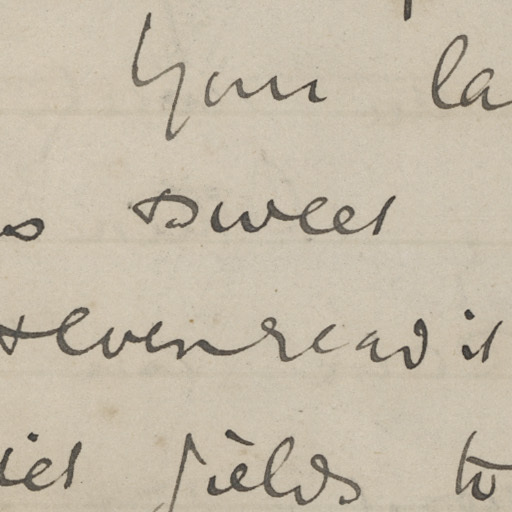 Your la
s sweet
even read it
iet fields to